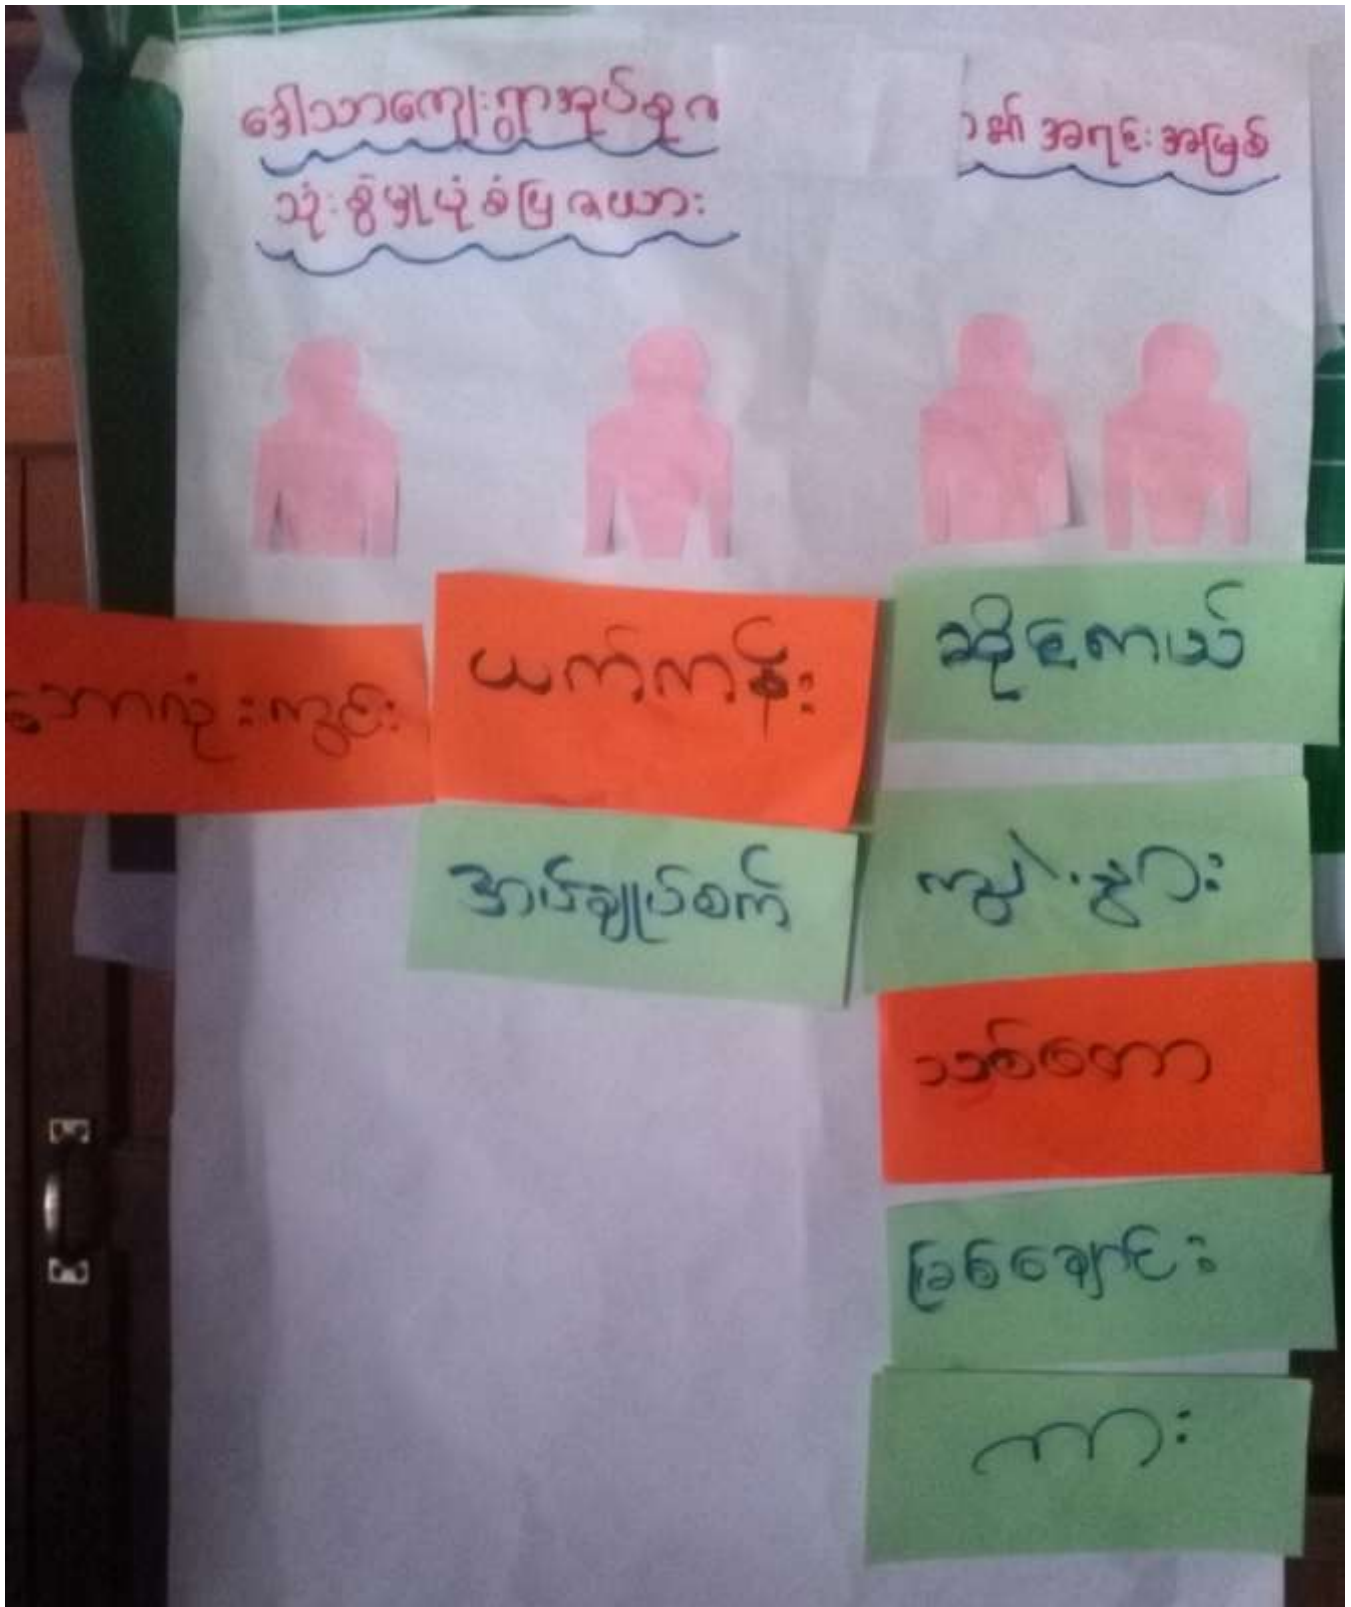 ဒေါသာကျေးရွာအုပ်စု၊
၏ အရင်းအမြစ်
သုံးစွဲမှုပုံစံပြဇယား
ဘောလုံးကွင်း
ယက်ကန်း
ဆိုင်ကယ်
အပ်ချုပ်စက်
ကျွဲ၊နွား
သစ်တော
မြစ်ချောင်း
ကား